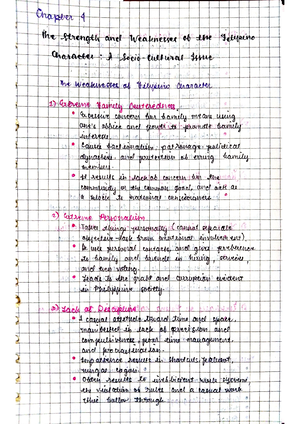 Chapter 4
The Strength and Weaknesses of the Filipino
Character: A Socio-Cultural Issue
The Weaknesses of Filipino Character
1) Extreme Family Centeredness
• Excessive concern for family means using
one's office and power to promote family
interest
• Causes factionalism, patronage, political
dynasties, and protection of erring family
members.
• It results in lack of concern for the
community or the common good, and acts as
a block to national consciousness
2) Extreme Personalism
• Takes things personally (cannot separate
objective task from emotional involvement)
• In use personal contacts, and gives preference
to family and friends in hiring, services,
and even voting.
• Leads to the graft and corruption evident
in Philippine society.
3) Lack of Discipline
• A casual attitude toward time and space,
manifested in lack of precision and
compulsiveness, poor time management,
and procrastination.
• Impatience results in shortcuts, palusot,
ningas cogon.
• Often results to inefficient work system,
the violation of rules and a casual work
ethic
follow through.